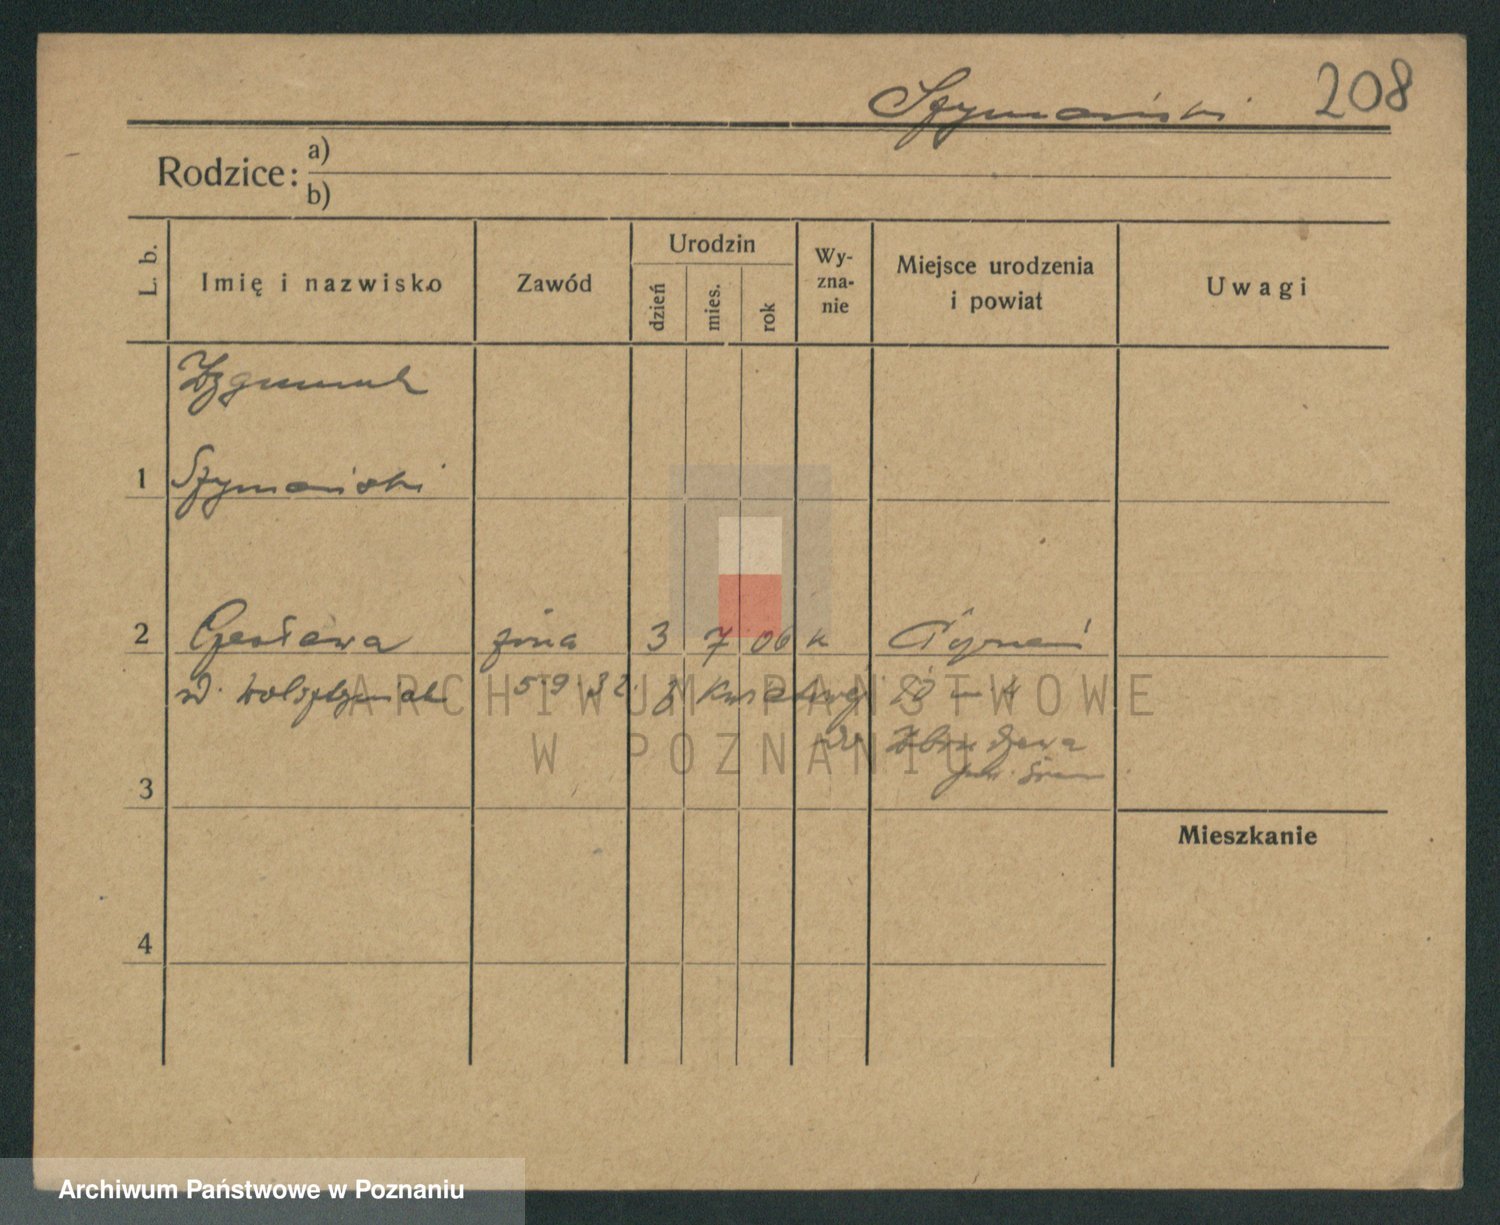 Szymański 208
Rodzice: a)
b)
L. b. Imię i nazwisko Zawód Urodzin dzień mies. rok Wy-zna-nie Miejsce urodzenia i powiat Uwagi
Zygmunt
1 Szymański
2 Czesława żona 3 7 06 k Poznań
5.9.32
3
pow. Śrem
Mieszkanie
4
ARCHIWUM PAŃSTWOWE
W POZNANIU
Archiwum Państwowe w Poznaniu